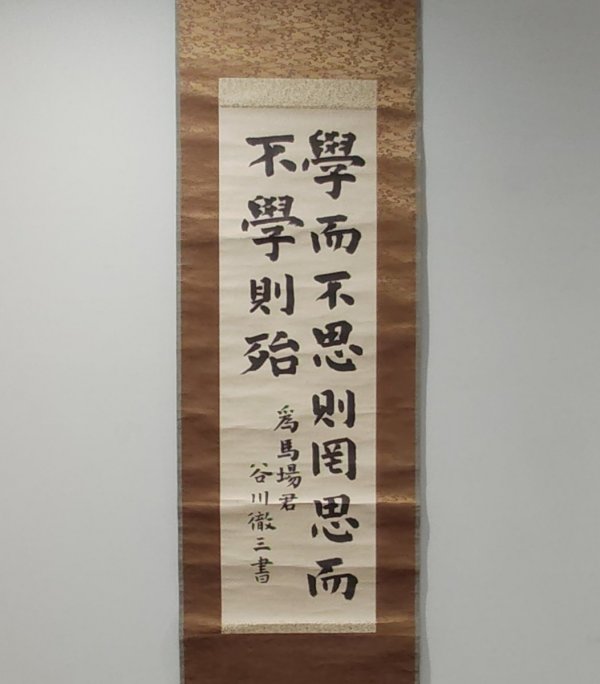 學而不思則罔思而
不學則殆
爲馬場君
谷川徹三書